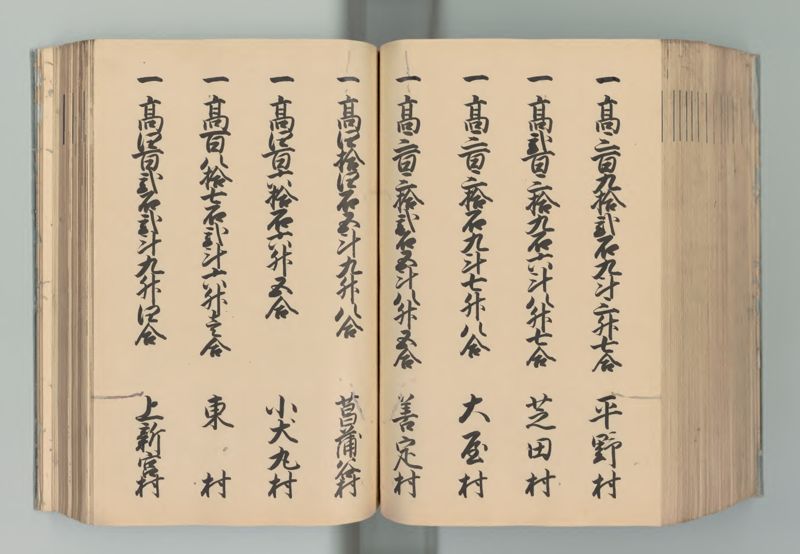 一 高三百九拾弐石九斗三升七合 平野村
一 高弐百三拾九石六斗八升七合 芝田村
一 高三百三拾石九斗七升八合 大屋村
一 高三百三拾弐石五斗八升五合 善定村
一 高四拾四石五斗九升八合 菖蒲谷村
一 高四百六拾石六升五合 小犬丸村
一 高百八拾七石弐斗六升壱合 東村
一 高四百弐石弐斗九升四合 上新宮村